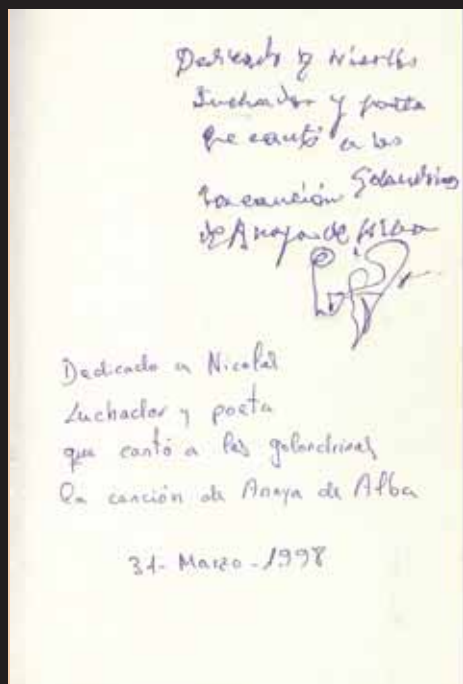 Dedicado a Nicolás
Luchador y poeta
que cantó a las
Golandrinas
la canción
de Anaya de Alba
Dedicado a Nicolás
Luchador y poeta
que cantó a las golondrinas
la canción de Anaya de Alba
31-Marzo-1998